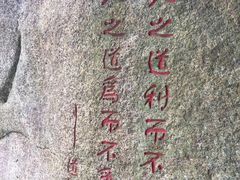 之道利而不
之道為而不
道